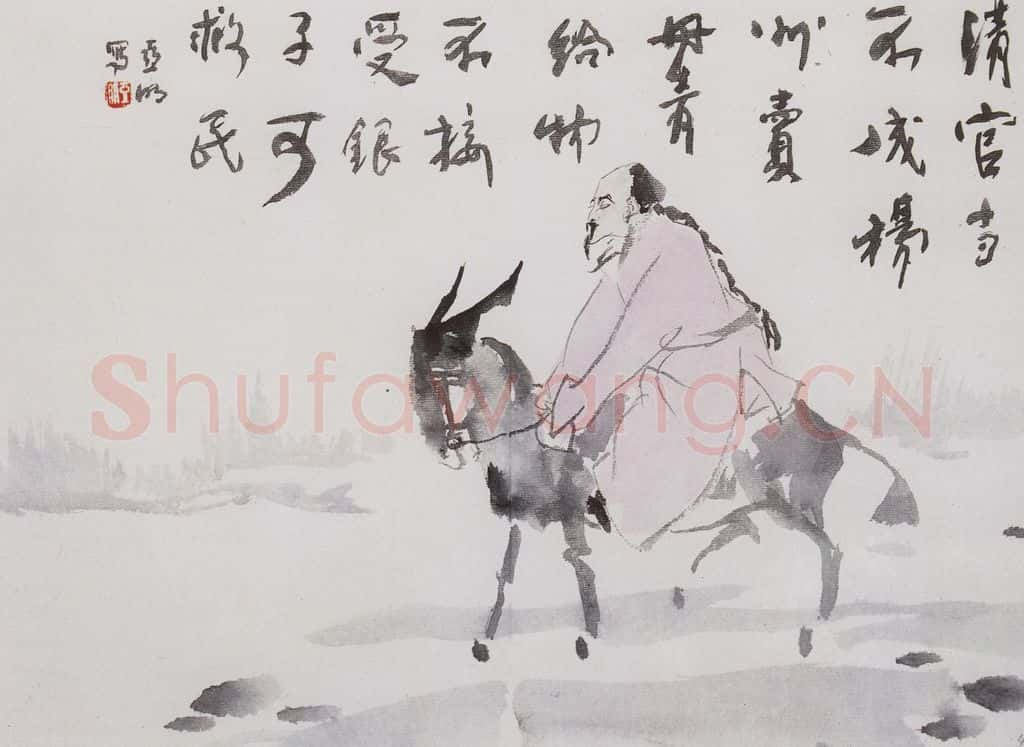 清官当
不成楊
州賣
丹青
给物
不接
受銀
子可
救民
亚明
写
Shufawang.CN